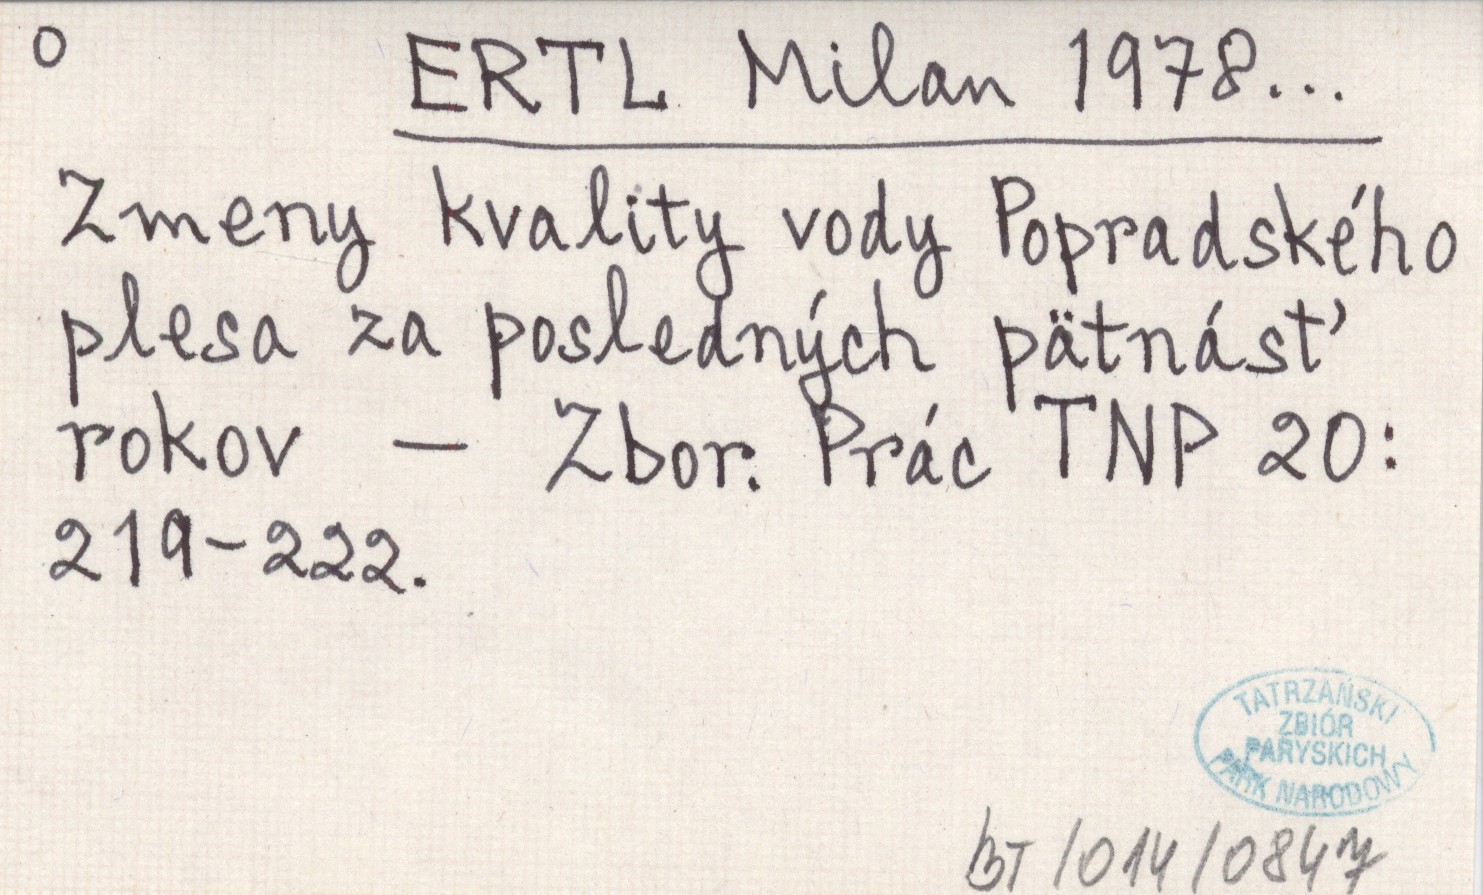 O
ERTL Milan 1978...
Zmeny kvality vody Popradského
plesa za posledných pätnásť
rokov – Zbor. Prác TNP 20:
219-222.
TATRZAŃSKI
ZBIÓR
PARYSKICH
PARK NARODOWY
BT/014/0847